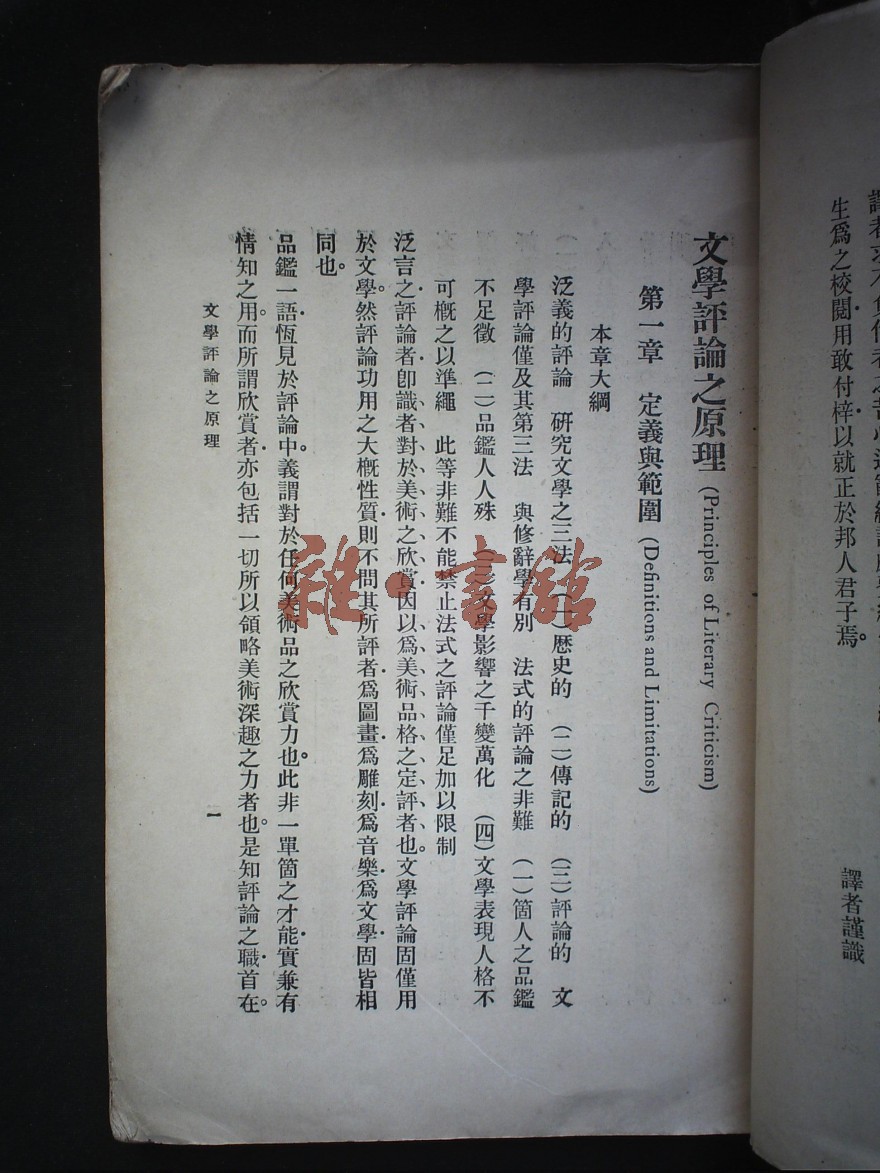 生爲之校閱用敢付梓以就正於邦人君子焉。
譯者謹識
文學評論之原理 (Principles of Literary Criticism)
第一章 定義與範圍 (Definitions and Limitations)
本章大綱
泛義的評論 研究文學之三法 (一)歷史的 (二)傳記的 (三)評論的 文
學評論僅及其第三法 與修辭學有別 法式的評論之非難 (一)箇人之品鑑
不足徵 (二)品鑑人人殊 (三)文學影響之千變萬化 (四)文學表現人格不
可概之以準繩 此等非難不能禁止法式之評論僅足加以限制
泛言之評論者卽識者對於美術之欣賞因以爲美術品格之定評者也。文學評論固僅用
於文學。然評論功用之大概性質則不問其所評者爲圖畫爲雕刻爲音樂爲文學固皆相
同也。
品鑑一語恆見於評論中。義謂對於任何美術品之欣賞力也。此非一單箇之才能實兼有
情知之用。而所謂欣賞者亦包括一切所以領略美術深趣之力者也。是知評論之職首在。
文學評論之原理
一
雜·書館